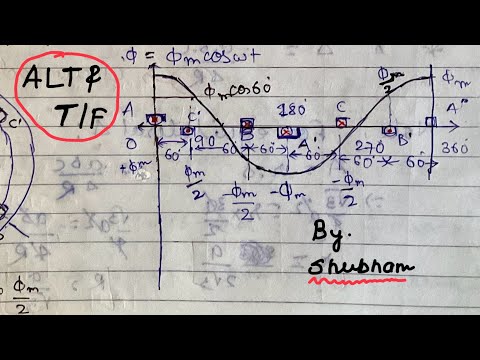 ϕ = ϕm cos ωt
ALT &
T/F
ϕm cos 60°
ϕm/2
ϕm
A
C'
B
180°
A'
C
B'
A"
0
90°
270°
360°
60°
60°
60°
60°
60°
60°
+ϕm
ϕm/2
-ϕm/2
-ϕm
-ϕm/2
C'
By.
Shubham
ϕm/2